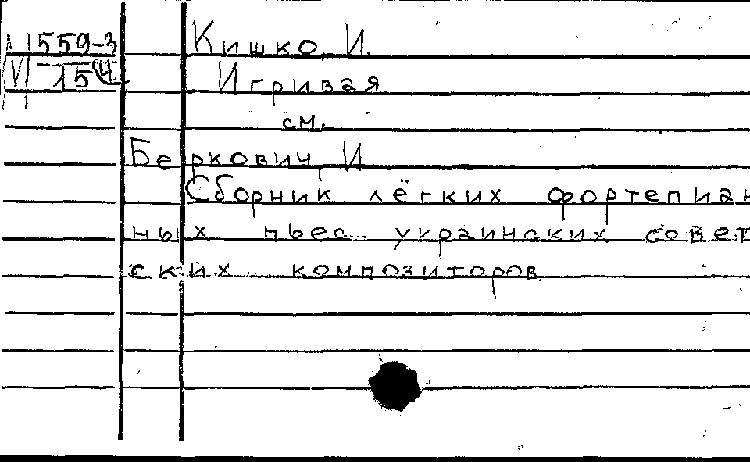 1559-3 Кишко И.
VI 154 Игривая
см.
Беркович И
Сборник лёгких фортепиан
ных пьес украинских совет
ских композиторов